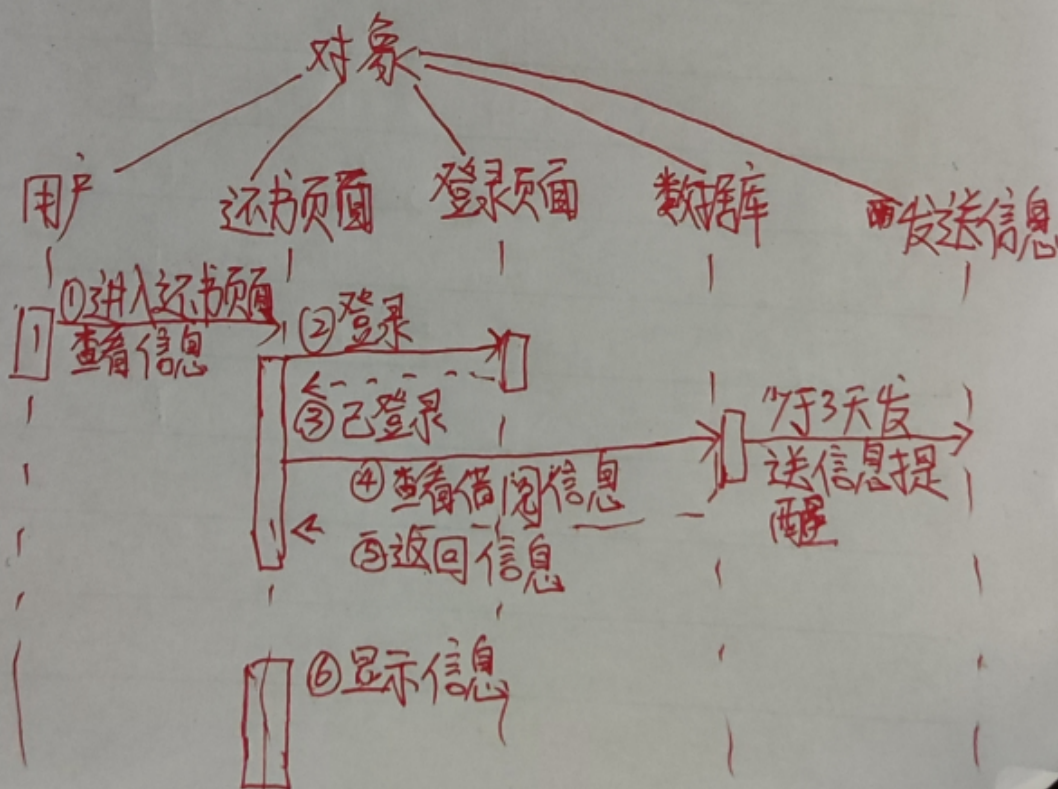 对象
用户
还书页面
登录页面
数据库
发送信息
①进入还书页面
查看信息
②登录
③已登录
④查看借阅信息
⑤返回信息
于3天发
送信息提
醒
⑥显示信息